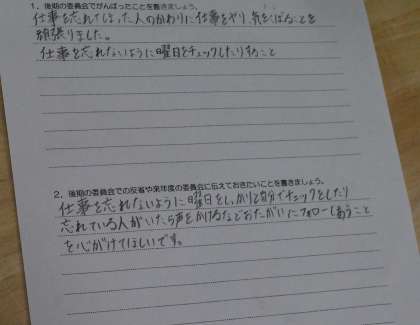 1. 後期の委員会でがんばったことを書きましょう。
仕事を忘れてしまった人のかわりに仕事をやり、気をくばることを
頑張りました。
仕事を忘れないように曜日をチェックしたりすること
2. 後期の委員会での反省や来年度の委員会に伝えておきたいことを書きましょう。
仕事を忘れないように曜日をしっかりと自分でチェックをしたり
忘れている人がいたら声をかけるなどおたがいにフォローしあうこと
を心がけてほしいです。